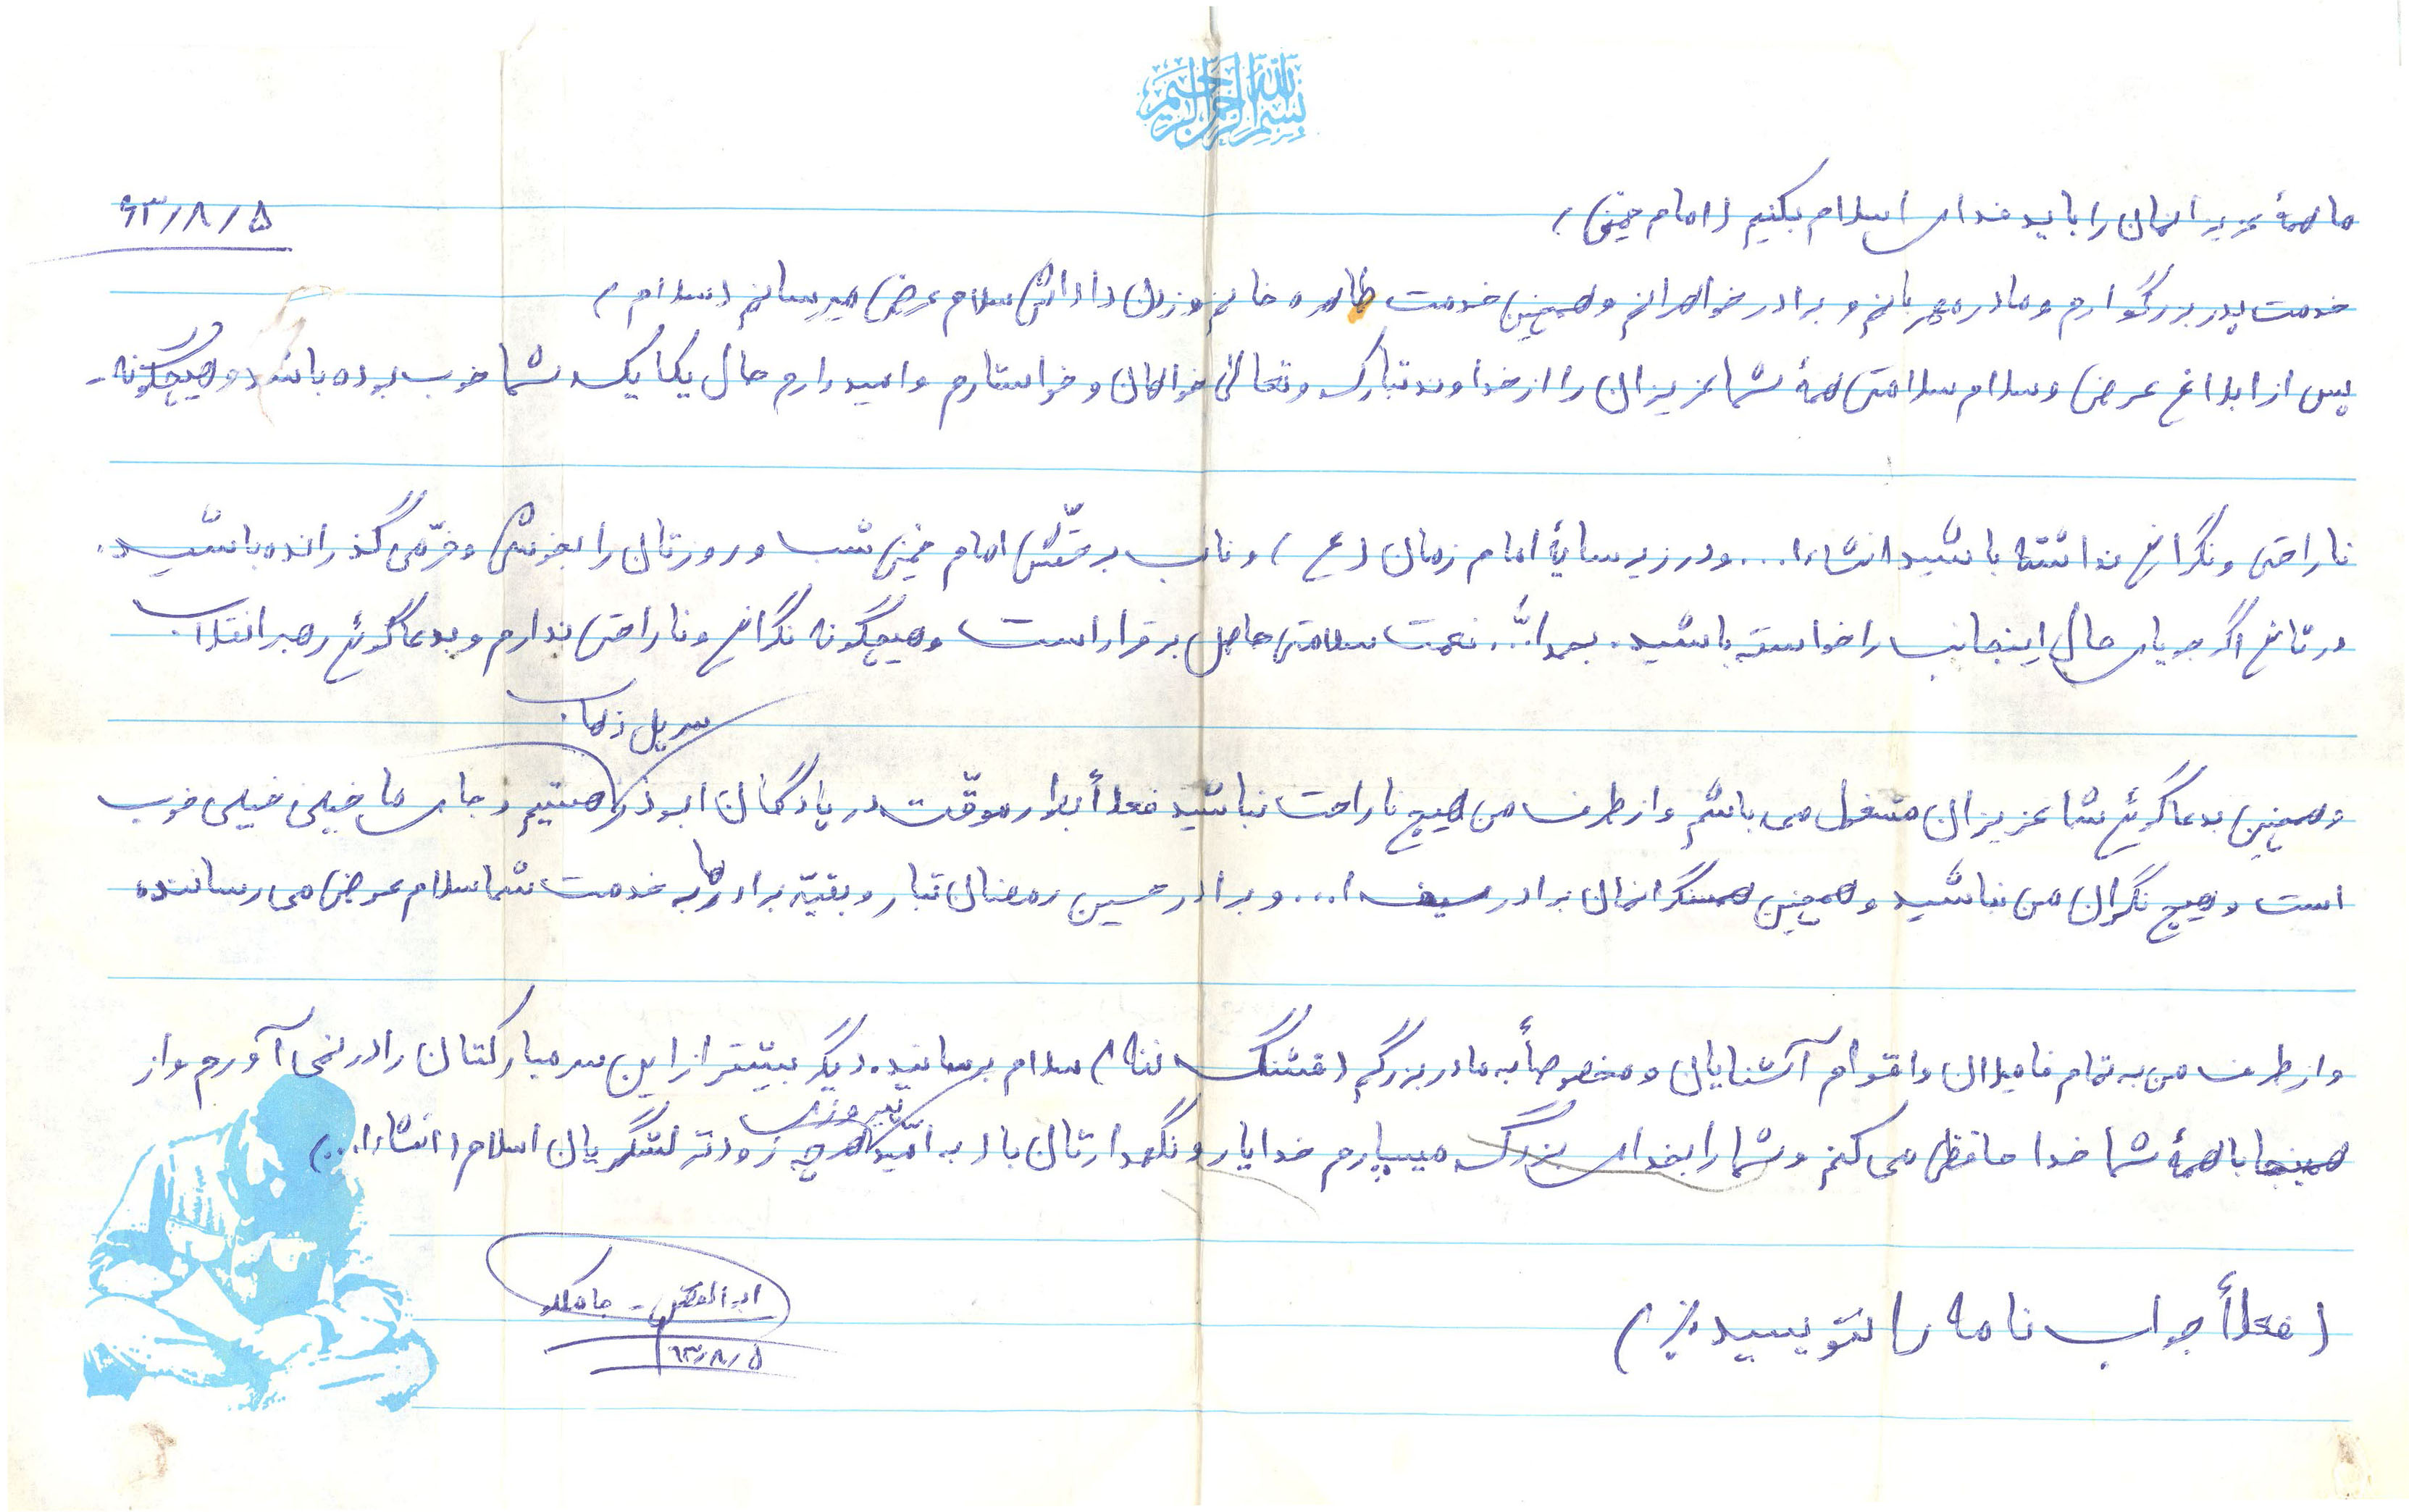 بسم الله الرحمن الرحیم
ما همهٔ عزیزانمان را باید فدای اسلام بکنیم (امام خمینی)
۶۳/۸/۵
خدمت پدر بزرگوارم و مادر مهربانم و برادر خواهرانم و همچنین خدمت طاهره خانم و زن داداش سلام عرض میرسانم (سلام)
پس از ابلاغ عرض و سلام سلامتی همهٔ شما عزیزان را از خداوند تبارک و تعالی خواهان و خواستارم و امیدوارم حال یکایک شما خوب بوده باشد و هیچگونه -
ناراحتی و نگرانی نداشته باشید انشاءا... و در زیر سایهٔ امام زمان (عج) و نائب برحقّش امام خمینی شب و روزتان را بخوشی و خرّمی گذرانده باشید.
در ثانی اگر جویای حال اینجانب را خواسته باشید. بحمدالله. نعمت سلامتی حاصل برقرار است و هیچگونه نگرانی و ناراحتی ندارم و بدعاگوئی رهبر انقلاب
سرپل ذهاب
و همچنین بدعاگوئی شما عزیزان مشغول می باشم و از طرف من هیچ ناراحت نباشید فعلاً بطور موقّت در پادگان ابوذر هستیم و جای ما خیلی خیلی خوب
است و هیچ نگران من نباشید و همچنین همسنگرانمان برادر سیف ا... و برادر حسین رمضان تبار و بقیّه برادرها به خدمت شما سلام عرض می رسانده
و از طرف من به تمام فامیلان و اقوام آشنایان و مخصوصاً به مادر بزرگم (قشنگ ننه) سلام برسانید. دیگر بیشتر از این سر مبارکتان را درنمی آورم و از
همینجا با همهٔ شما خدا حافظی می کنم و شما را بخدای بزرگ میسپارم خدا یار و نگهدارتان باد به امّید هر چه زودتر پیروزی لشگریان اسلام (انشاءا...)
(فعلاً جواب نامه را ننویسید)
ابوالفضل -
۶۳/۸/۵